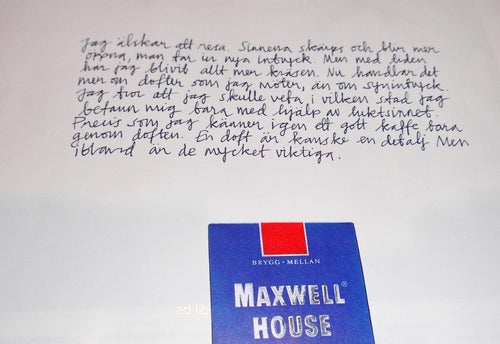 Jag älskar att resa. Sinnena skärps och blir mer
öppna, man får in nya intryck. Men med tiden
har jag blivit allt mer kräsen. Nu handlar det
mer om dofter som jag möter, än om synintryck.
Jag tror att jag skulle veta i vilken stad jag
befann mig bara med hjälp av luktsinnet.
Precis som jag känner igen ett gott kaffe bara
genom doften. En doft är kanske en detalj Men
ibland är de mycket viktiga.
BRYGG · MELLAN
MAXWELL®
HOUSE
ad lib